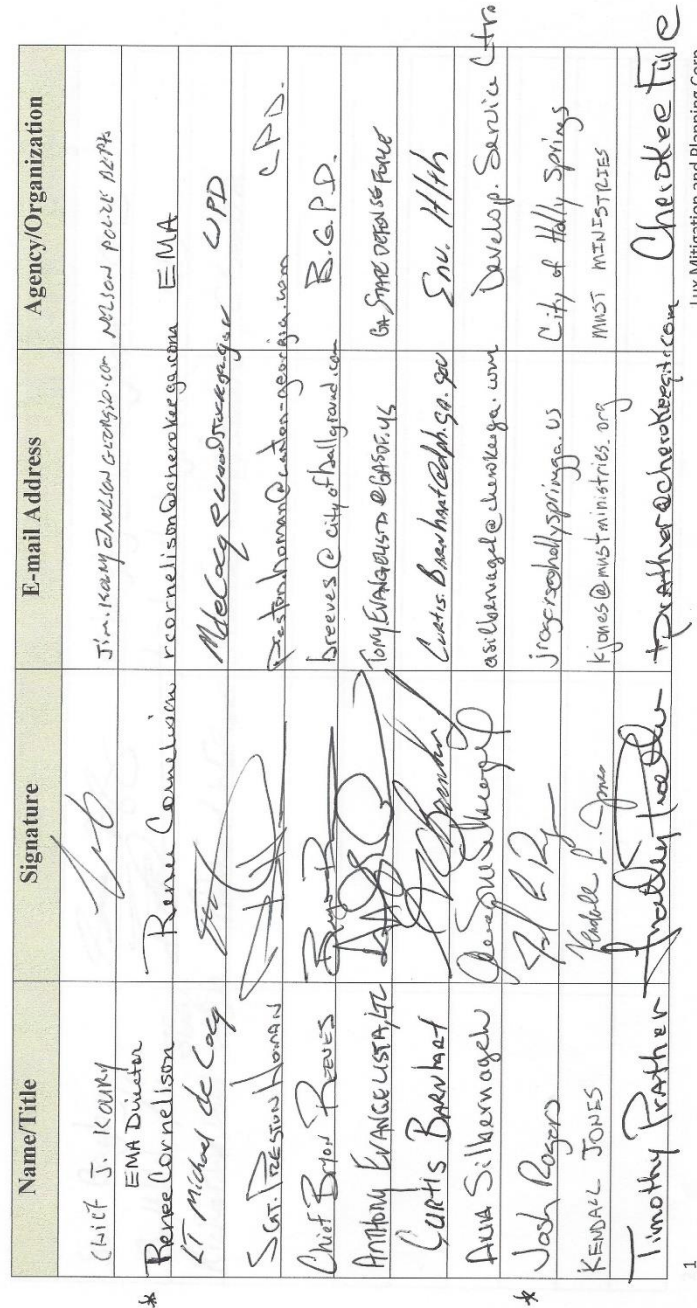 Name/Title Signature E-mail Address Agency/Organization
Chief J. Koury Jim.Koury@NelsonGeorgia.com Nelson Police Dept.
* EMA Director
Renee Cornelison Renee Cornelison rcornelison@cherokeega.com EMA
LT Michael deCocq WPD
Sgt. Preston Homan Preston.homan@canton-georgia.com CPD.
Chief Bryon Reeves breeves@cityofballground.com B.G.P.D.
Anthony Evangelista, LTC Tony.Evangelista@GASDF.us GA State Defense Force
Curtis Barnhart Curtis.Barnhart@dph.ga.gov Env. Hlth
Anna Silbernagel asilbernagel@cherokeega.com Develop. Service Ctr.
* Josh Rogers jrogers@hollyspringsga.us City of Holly Springs
Kendall Jones Kendall L. Jones kjones@mustministries.org MUST MINISTRIES
Timothy Prather tprather@cherokeega.com Cherokee Fire
1
Lux Mitigation and Planning Corp